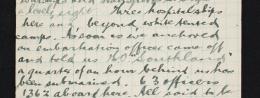 a lovely sight. Three hospital ships
here and, beyond, white tented
camps. As soon as we anchored
an embarkation officer came off
and told us H.T. Southland
a quarter of an hour behind us has
been submarined. 63 officers
1362 aboard her. All said to be